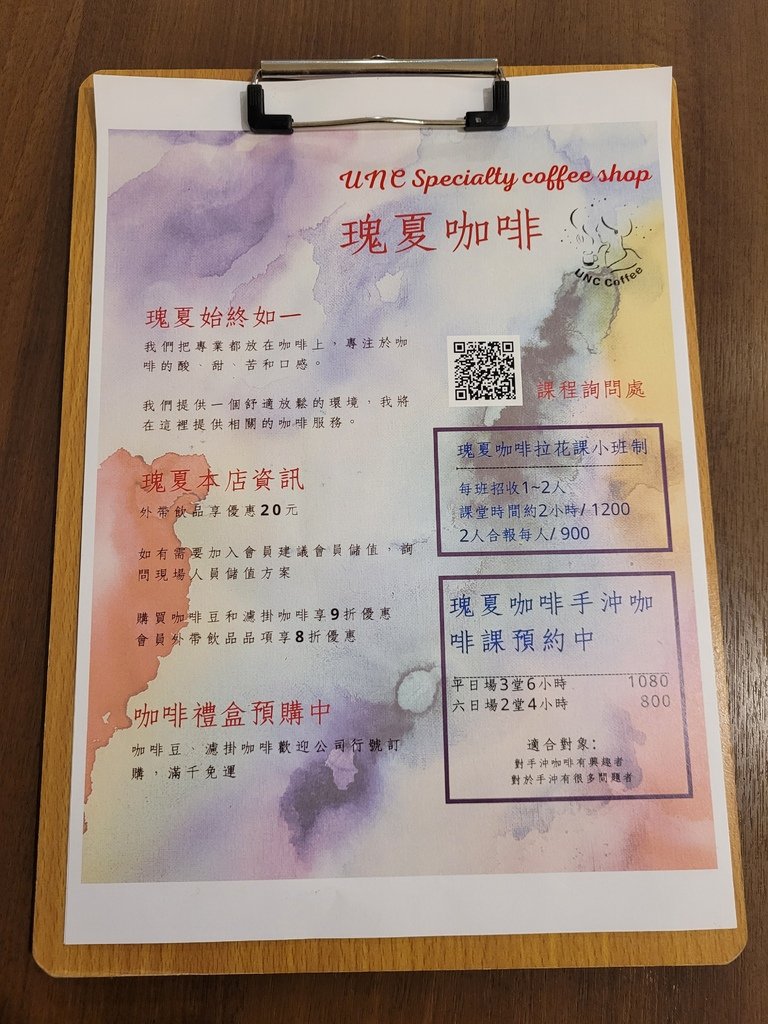 UNC Specialty coffee shop
瑰夏咖啡
UNC Coffee
瑰夏始終如一
我們把專業都放在咖啡上，專注於咖
啡的酸、甜、苦和口感。
我們提供一個舒適放鬆的環境，我將
在這裡提供相關的咖啡服務。
瑰夏本店資訊
外帶飲品享優惠20元
如有需要加入會員建議會員儲值，詢
問現場人員儲值方案
購買咖啡豆和濾掛咖啡享9折優惠
會員外帶飲品品項享8折優惠
咖啡禮盒預購中
咖啡豆、濾掛咖啡歡迎公司行號訂
購，滿千免運
課程詢問處
瑰夏咖啡拉花課小班制
每班招收1~2人
課堂時間約2小時/ 1200
2人合報每人/ 900
瑰夏咖啡手沖咖
啡課預約中
平日場3堂6小時 1080
六日場2堂4小時 800
適合對象：
對手沖咖啡有興趣者
對於手沖有很多問題者